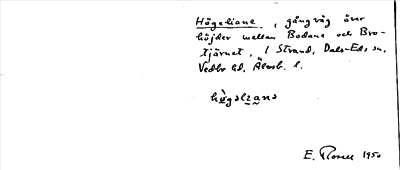 Högeliane, gångväg över
höjder mellan Bodane och Bro-
tjärnet, i Strand, Dals-Eds sn,
Vedbo hd, Älvsb. l.
hø̀gəlɪanə
E. Rosell 1950